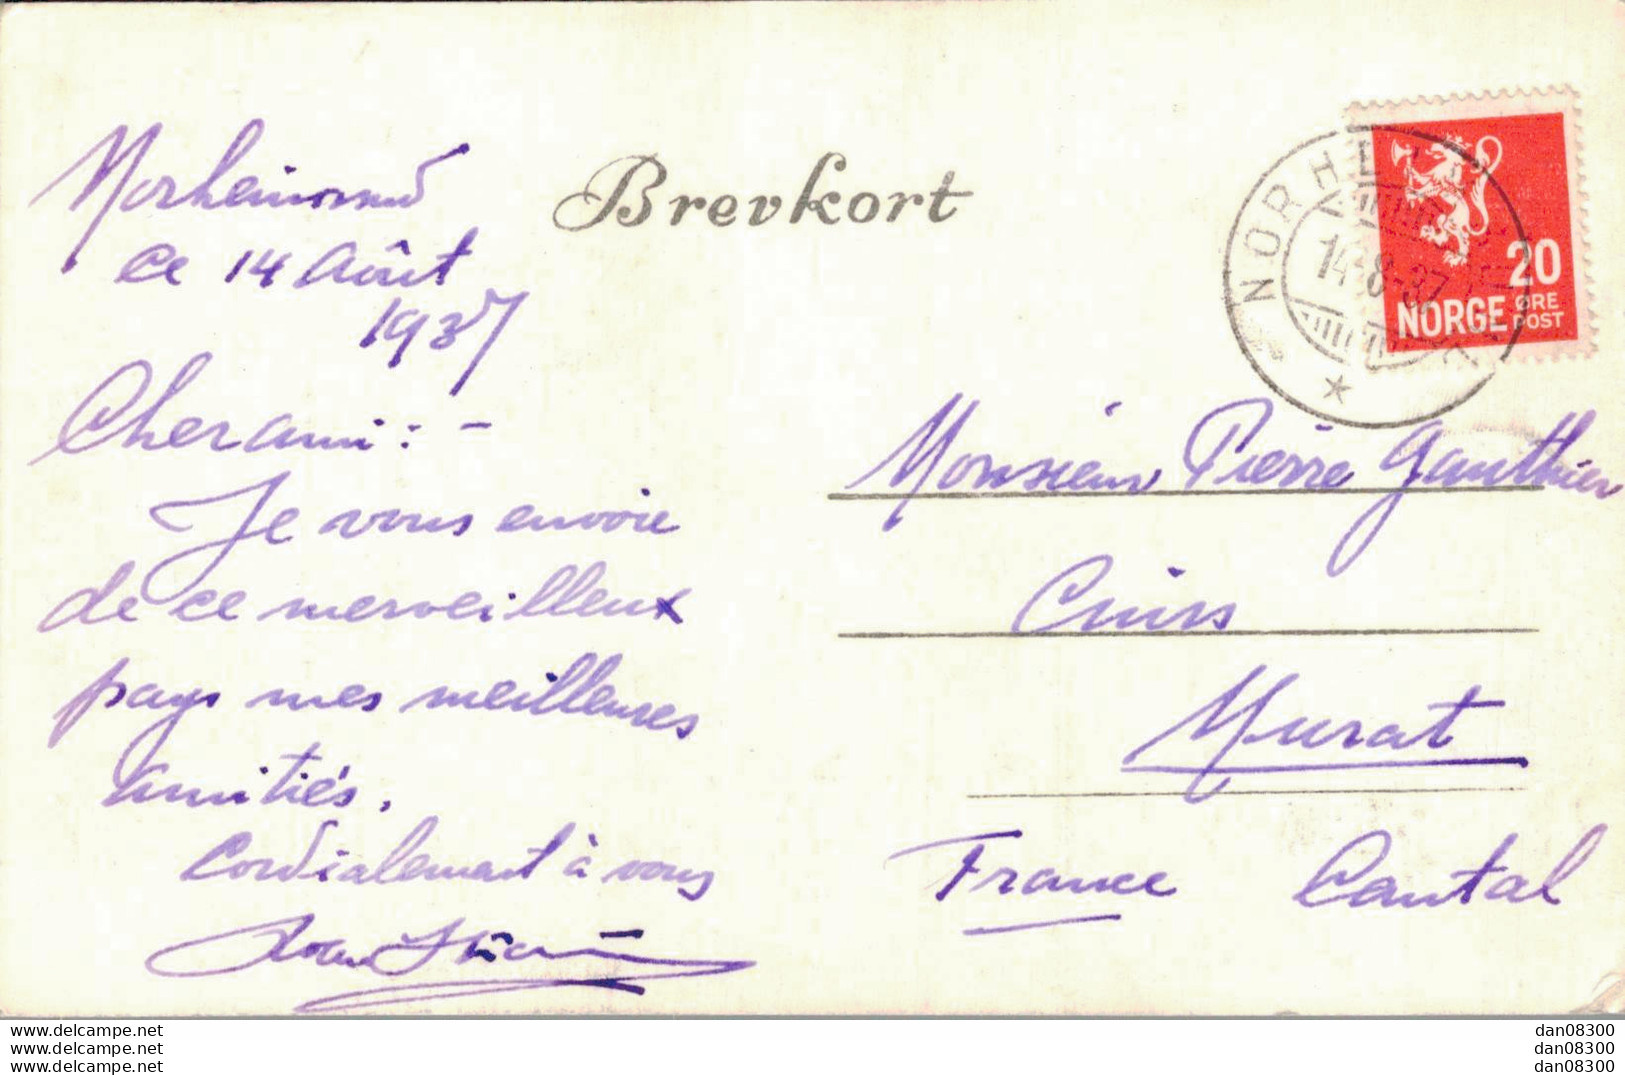 Brevkort
Norheimsund
ce 14 Août
1937
Cher ami : -
Je vous envoie
de ce merveilleux
pays mes meilleures
amitiés.
Cordialement à vous
NORHEI
14-8-37
20
NORGE ØRE
POST
Monsieur Pierre Gauthier
Cuirs
Murat
France Cantal
www.delcampe.net
www.delcampe.net
www.delcampe.net
dan08300
dan08300
dan08300